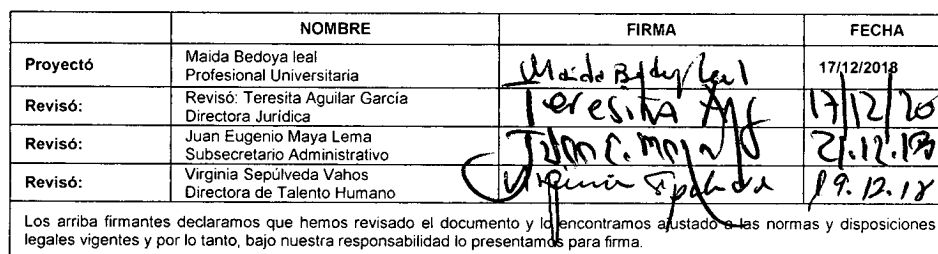 NOMBRE FIRMA FECHA
Proyectó Maida Bedoya leal
Profesional Universitaria Maida Bedoya leal 17/12/2018
Revisó: Revisó: Teresita Aguilar García
Directora Jurídica Teresita 17/12/20
Revisó: Juan Eugenio Maya Lema
Subsecretario Administrativo Juan E. Maya 21.12.18
Revisó: Virginia Sepúlveda Vahos
Directora de Talento Humano Virginia Sepulveda 19.12.18
Los arriba firmantes declaramos que hemos revisado el documento y lo encontramos ajustado a las normas y disposiciones
legales vigentes y por lo tanto, bajo nuestra responsabilidad lo presentamos para firma.